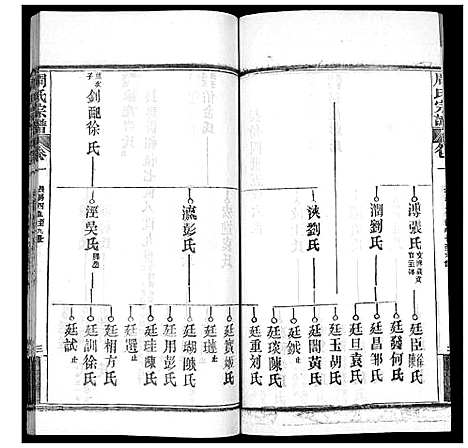 周氏宗譜
卷一
溥張氏
潤劉氏
浹劉氏
廷臣
廷發何氏
廷昌鄒氏
廷旦袁氏
廷玉胡氏
廷閣黃氏
廷錢 止
廷琰陳氏
廷重刘氏
周氏宗譜
卷一
釗配徐氏
瀛彭氏
涇吳氏
廷賓
廷璉 止
廷瑚
廷用彭氏
廷珪陳氏
廷選 止
廷相方氏
廷訓徐氏
廷試 止
三